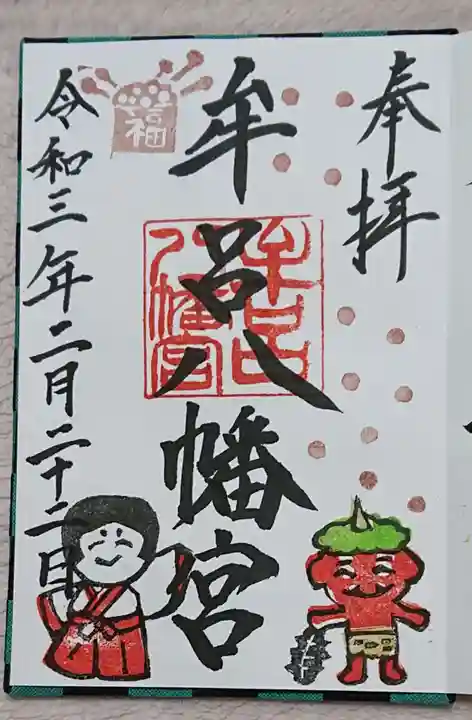 奉拝
牟呂八幡宮
牟呂
八幡宮
福
令和三年二月二十二日